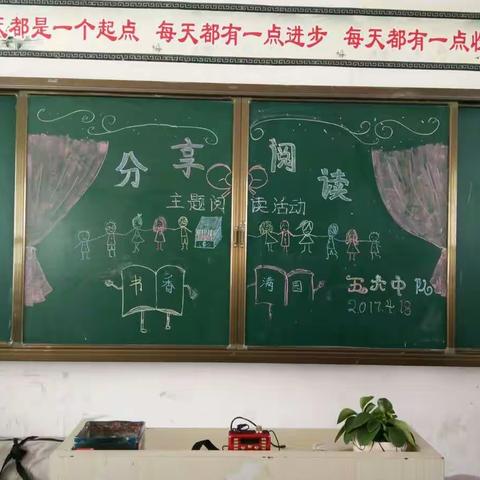 天都是一个起点 每天都有一点进步 每天都有一点收
分享阅读
主题阅读活动
书香满园
五六中队
2017.4.18